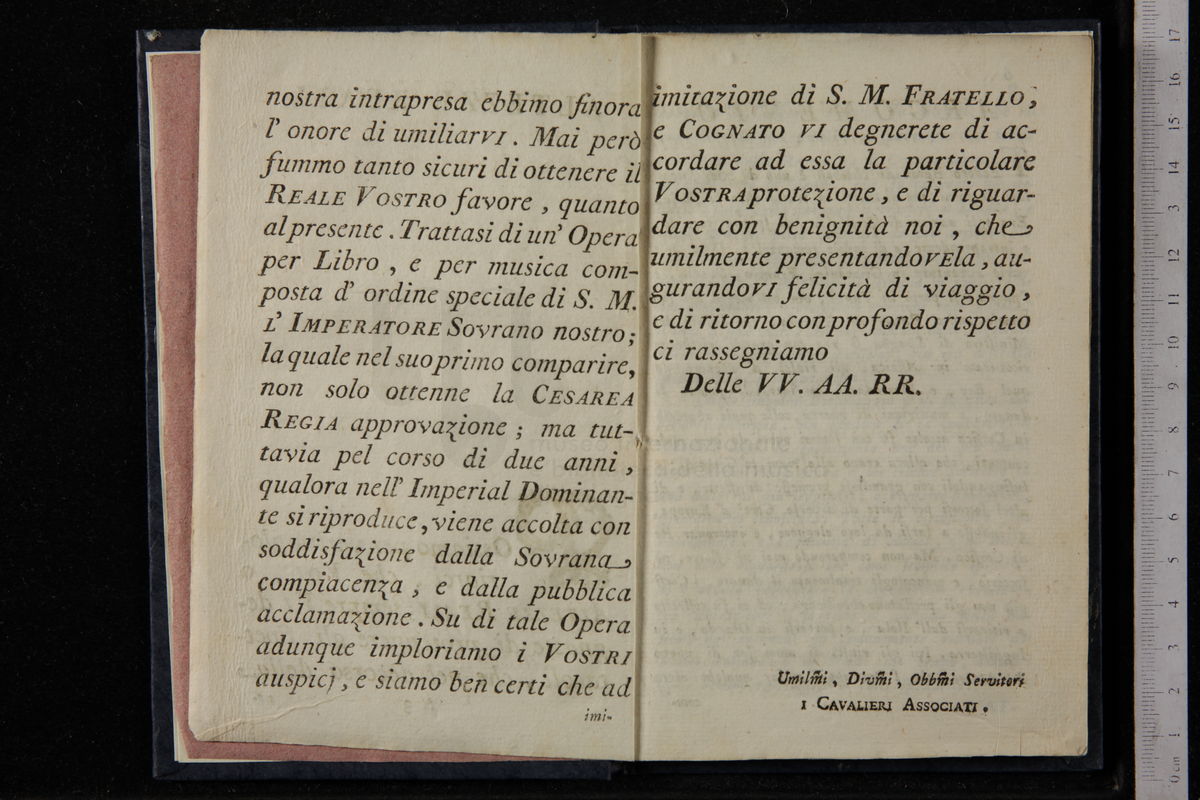 nostra intrapresa ebbimo finora
l' onore di umiliarVI. Mai però
fummo tanto sicuri di ottenere il
REALE VOSTRO favore, quanto
al presente. Trattasi di un' Opera
per Libro, e per musica com-
posta d' ordine speciale di S. M.
L' IMPERATORE Sovrano nostro;
la quale nel suo primo comparire,
non solo ottenne la CESAREA
REGIA approvazione; ma tut-
tavia pel corso di due anni,
qualora nell' Imperial Dominan-
te si riproduce, viene accolta con
soddisfazione dalla Sovrana
compiacenza, e dalla pubblica
acclamazione. Su di tale Opera
adunque imploriamo i VOSTRI
auspicj, e siamo ben certi che ad
imi-
imitazione di S. M. FRATELLO,
e COGNATO VI degnerete di ac-
cordare ad essa la particolare
VOSTRA protezione, e di riguar-
dare con benignità noi, che
umilmente presentandoVEla, au-
gurandoVI felicità di viaggio,
e di ritorno con profondo rispetto
ci rassegniamo
Delle VV. AA. RR.
Umilm̃i, Divm̃i, Obbm̃i Servitori
I CAVALIERI ASSOCIATI.
0 cm 1 2 3 4 5 6 7 8 9 10 11 12 13 14 15 16 17